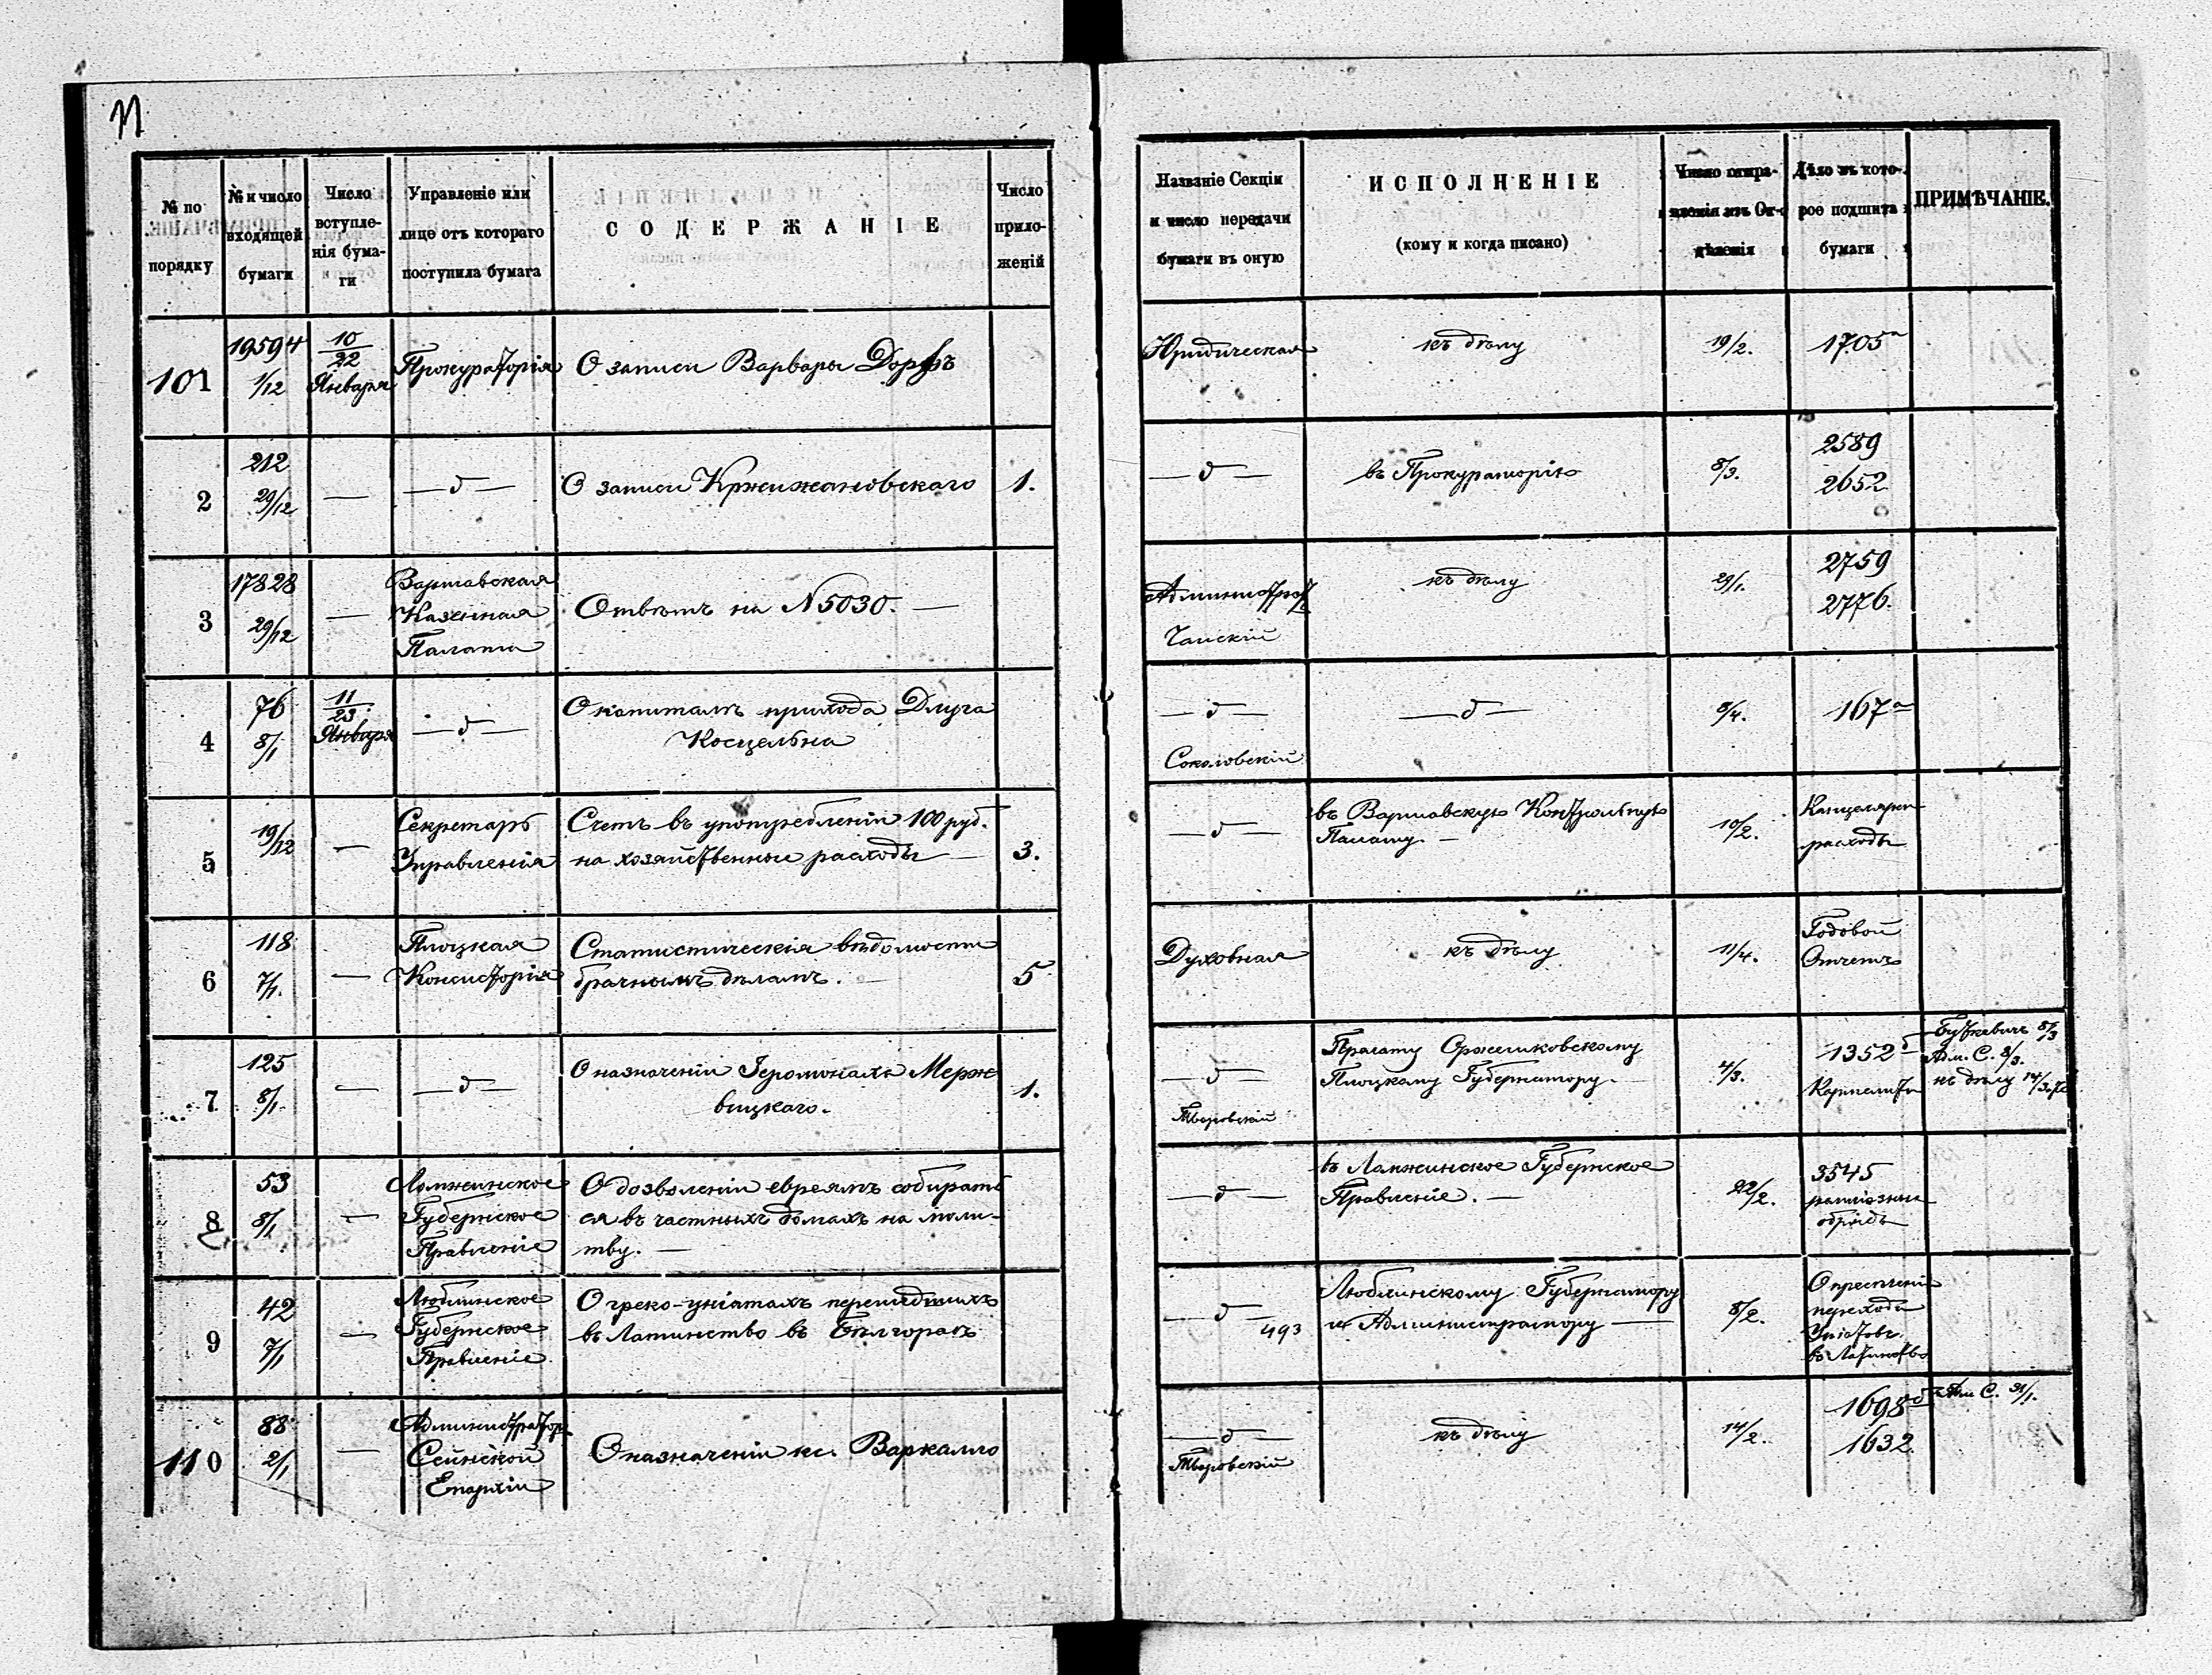 11
№ по порядку
№ и число входящей бумаги
Число вступленія бумаги
Управленіе или лице отъ котораго поступила бумага
СОДЕРЖАНІЕ
Число приложеній
Названіе Секціи и число передачи бумаги въ оную
ИСПОЛНЕНІЕ
(кому и когда писано)
Число отправленія изъ Отдѣленія
Дѣло въ которое подшита бумаги
ПРИМѢЧАНІЕ.
101
19594
1/12
10/22
Января
Прокураторія
О записи Варвары Дорфъ
Юридическая
къ дѣлу
19/2.
1705а
2
212
29/12
—
— д —
О записи Кржижановскаго
1.
— д —
въ Прокураторію
8/3.
2589
2652
3
17828
29/12
—
Варшавская
Казенная
Палата
Отвѣтъ на N 5030. —
къ дѣлу
29/1.
2759
2776.
4
76
8/1
11/23
Января
— д —
О капиталѣ прихода Длуга
Косцельна
— д —
Соколовскій
— д —
8/4.
167а
5
19/12
—
Секретарь
Управленія
Счетъ въ употребленіи 100 руб.
на хозяйственные расходы —
3.
— д —
въ Варшавскую Контрольную
Палату. —
10/2.
расходы
6
118
7/1.
—
Плоцкая
Консисторія
Статистическія вѣдомости
брачнымъ дѣламъ. —
5
Духовная
къ дѣлу
11/4.
Годовой
Отчетъ
7
125
8/1.
—
— д —
О назначеніи Іеромонаха Мерж
вицкаго.
1.
— д —
Тваровскій
Прелату Оржешковскому
Плоцкому Губернатору. —
4/3.
1352б
8/3
Адм. С. 8/3.
къ дѣлу 14/3
8
53
8/1
—
Ломжинское
Губернское
Правленіе
О дозволеніи евреямъ собирать
ся въ частныхъ домахъ на моли-
тву. —
— д —
въ Ломжинское Губернское
Правленіе. —
22/2.
3545
9
42
7/1
—
Люблинское
Губернское
Правленіе
О греко-уніатахъ перешедшихъ
въ Латинство въ Бѣлгораѣ
— д —
493
Люблинскому Губернатору
и Администратору —
8/2.
перехода
Уніатовъ
въ Латинство
110
88
2/1
—
Администраторъ
Сейнской
Епархіи
О назначеніи кс. Варкалло
— д —
Тваровскій
къ дѣлу
14/2.
1698б
1632.
Адм С. 31/1.